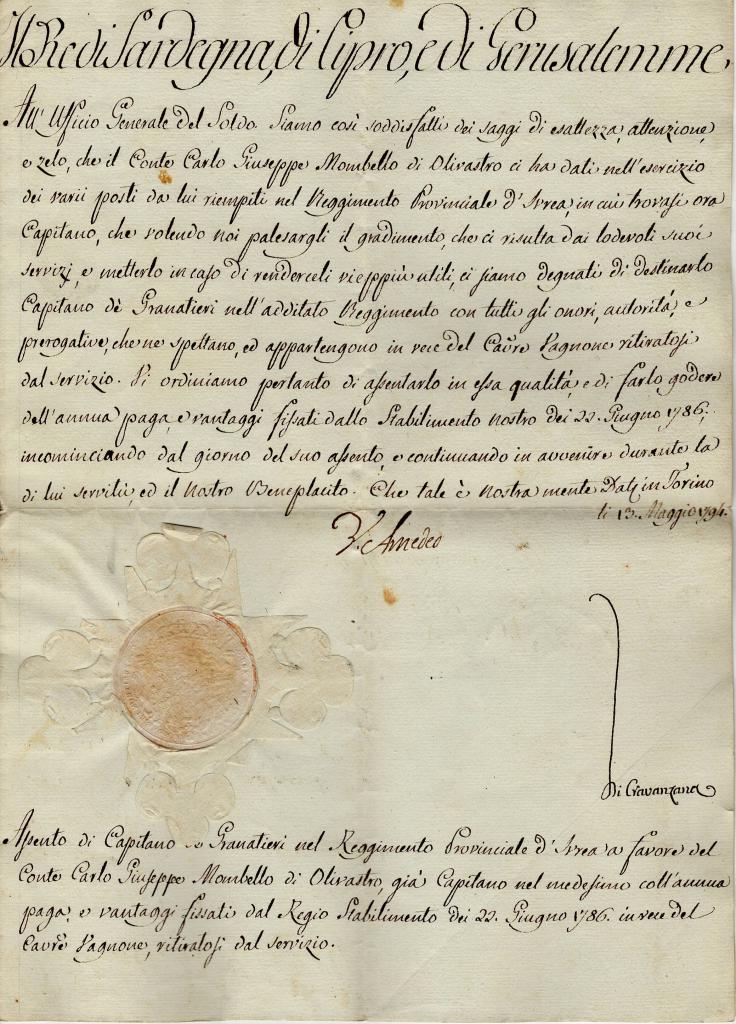 Il Re di Sardegna, di Cipro, e di Gerusalemme
All' Ufficio Generale del Soldo. Siamo così soddisfatti dei saggi di esattezza, attenzione,
e zelo, che il Conte Carlo Giuseppe Mombello di Olivastro ci ha dati nell'esercizio
dei varii posti da lui riempiti nel Reggimento Provinciale d'Ivrea, in cui trovasi ora
Capitano, che volendo noi palesargli il gradimento, che ci risulta dai lodevoli suoi
servizj, e metterlo in caso di renderceli vieppiù utili, ci siamo degnati di destinarlo
Capitano dè Granatieri nell'additato Reggimento con tutti gli onori, autorità, e
prerogative, che ne spettano, ed appartengono in vece del Cavre Vagnone ritiratosi
dal servizio. Vi ordiniamo pertanto di assentarlo in essa qualità, e di farlo godere
dell'annua paga, e vantaggi fissati dallo Stabilimento nostro dei 22. Giugno 1786.,
incominciando dal giorno del suo assento, e continuando in avvenire durante la
di lui servitù, ed il Nostro Beneplacito. Che tale è nostra mente. Dat. in Torino
li 13. Maggio 1794.
V. Amedeo
Di Cravanzana
Assento di Capitano Granatieri nel Reggimento Provinciale d'Ivrea a favore del
Conte Carlo Giuseppe Mombello di Olivastro, già Capitano nel medesimo coll'annua
paga, e vantaggi fissati dal Regio Stabilimento dei 22. Giugno 1786. in vece del
Cavre Vagnone, ritiratosi dal servizio.